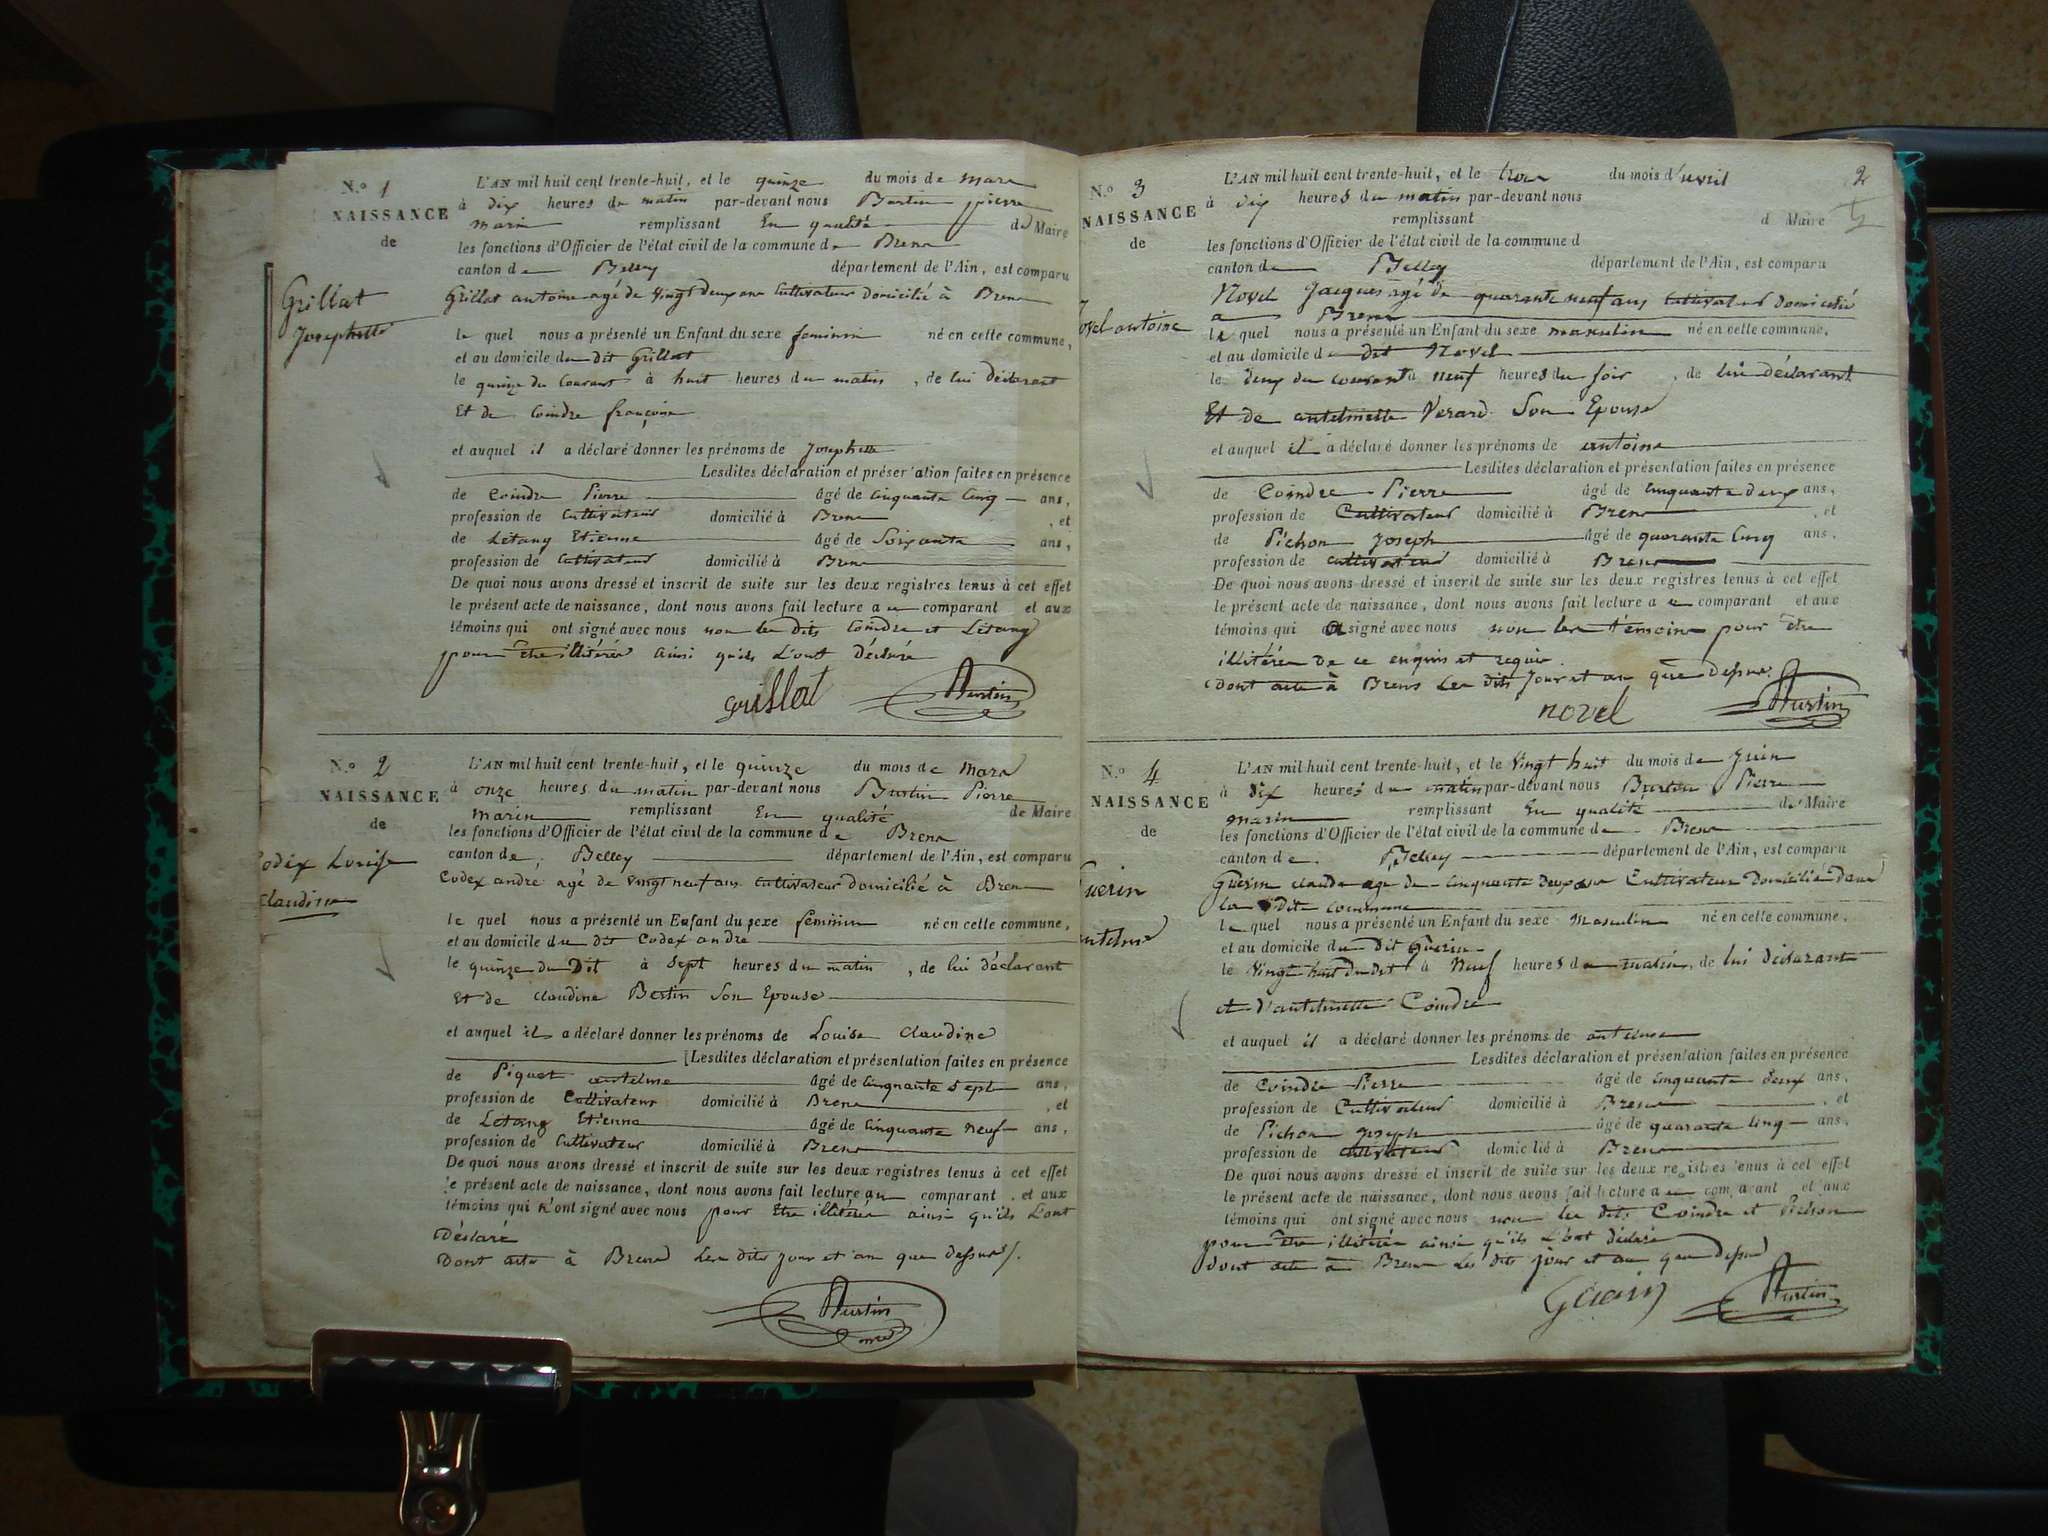 N.º 1
NAISSANCE
de
Grillat
Josephette
L'AN mil huit cent trente-huit, et le quinze du mois de mars
à dix heures du matin par-devant nous Burtin pierre
marin remplissant En qualité de Maire
les fonctions d'Officier de l'état civil de la commune de Brens
canton de Belley département de l'Ain, est comparu
Grillat antoine agé de vingt deux ans Cultivateur Domicilié à Brens
le quel nous a présenté un Enfant du sexe feminin né en cette commune,
et au domicile du dit Grillat
le quinze du Courant à huit heures du matin, de lui Déclarant
Et de Coindre françoise
et auquel il a déclaré donner les prénoms de Josephette
Lesdites déclaration et présentation faites en présence
de Coindre Pierre âgé de Cinquante Cinq ans,
profession de Cultivateur domicilié à Brens, et
de Létang Etienne âgé de Soixante ans,
profession de Cultivateur domicilié à Brens
De quoi nous avons dressé et inscrit de suite sur les deux registres tenus à cet effet
le présent acte de naissance, dont nous avons fait lecture au comparant et aux
témoins qui ont signé avec nous non les dits Coindre et Létang
pour Etre illitérés ainsi qu'ils L'ont Déclaré
Grillat Burtin
N.º 2
NAISSANCE
de
Codex Louise
Claudine
L'AN mil huit cent trente-huit, et le quinze du mois de Mars
à onze heures du matin par-devant nous Burtin Pierre
Marin remplissant En qualité de Maire
les fonctions d'Officier de l'état civil de la commune de Brens
canton de Belley département de l'Ain, est comparu
Codex andré agé de vingt neuf ans Cultivateur Domicilié à Brens
le quel nous a présenté un Enfant du sexe féminin né en cette commune,
et au domicile du dit Codex andre
le quinze du Dit à Sept heures du matin, de lui déclarant
Et de Claudine Bertin Son Epouse
et auquel il a déclaré donner les prénoms de Louise Claudine
Lesdites déclaration et présentation faites en présence
de Piquet antelme âgé de Cinquante Sept ans,
profession de Cultivateur domicilié à Brens, et
de Létang Etienne âgé de Cinquante neuf ans,
profession de Cultivateur domicilié à Brens
De quoi nous avons dressé et inscrit de suite sur les deux registres tenus à cet effet
le présent acte de naissance, dont nous avons fait lecture au comparant, et aux
témoins qui n'ont signé avec nous pour Etre illitérés ainsi qu'ils L'ont
Déclaré
Dont acte à Brens Les dits jour et an que dessus
Burtin
N.º 3
NAISSANCE
de
Novel antoine
2
L'AN mil huit cent trente-huit, et le trois du mois d'avril
à dix heures du matin par-devant nous
remplissant d Maire
les fonctions d'Officier de l'état civil de la commune d
canton de Belley département de l'Ain, est comparu
Novel Jacques agé de quarante neuf ans Cultivateur Domicilié
a Brens
le quel nous a présenté un Enfant du sexe masculin né en cette commune,
et au domicile de dit Novel
le deux du courant à neuf heures du soir, de lui déclarant
Et de antelmette Verard Son Epouse
et auquel il a déclaré donner les prénoms de antoine
Lesdites déclaration et présentation faites en présence
de Coindre Pierre âgé de cinquante deux ans,
profession de Cultivateur domicilié à Brens, et
de Pichon Joseph âgé de quarante Cinq ans,
profession de Cultivateur domicilié à Brens
De quoi nous avons dressé et inscrit de suite sur les deux registres tenus à cet effet
le présent acte de naissance, dont nous avons fait lecture au comparant et aux
témoins qui a signé avec nous non les témoins pour être
illitérés de ce enquis et requis
Dont acte à Brens Les dits Jour et an que dessus
novel Burtin
N.º 4
NAISSANCE
de
Guerin
antelme
L'AN mil huit cent trente-huit, et le Vingt huit du mois de Juin
à dix heures du matin par-devant nous Burtin Pierre
marin remplissant En qualité de Maire
les fonctions d'Officier de l'état civil de la commune de Brens
canton de Belley département de l'Ain, est comparu
Guerin claude agé de Cinquante Deux ans Cultivateur Domicilié Dans
la dite commune
le quel nous a présenté un Enfant du sexe Masculin né en cette commune,
et au domicile du dit Guerin
le vingt huit du dit à Neuf heures du matin, de lui déclarant
et d'antelmette Coindre
et auquel il a déclaré donner les prénoms de antelme
Lesdites déclaration et présentation faites en présence
de Coindre Pierre âgé de cinquante deux ans,
profession de Cultivateur domicilié à Brens, et
de Pichon Joseph âgé de quarante Cinq ans,
profession de Cultivateur domicilié à Brens
De quoi nous avons dressé et inscrit de suite sur les deux registres tenus à cet effet
le présent acte de naissance, dont nous avons fait lecture au comparant et aux
témoins qui ont signé avec nous non les dits Coindre et Pichon
pour être illitérés ainsi qu'ils L'ont déclaré
Dont acte à Brens Les dits jour et an que dessus
Guerin Burtin